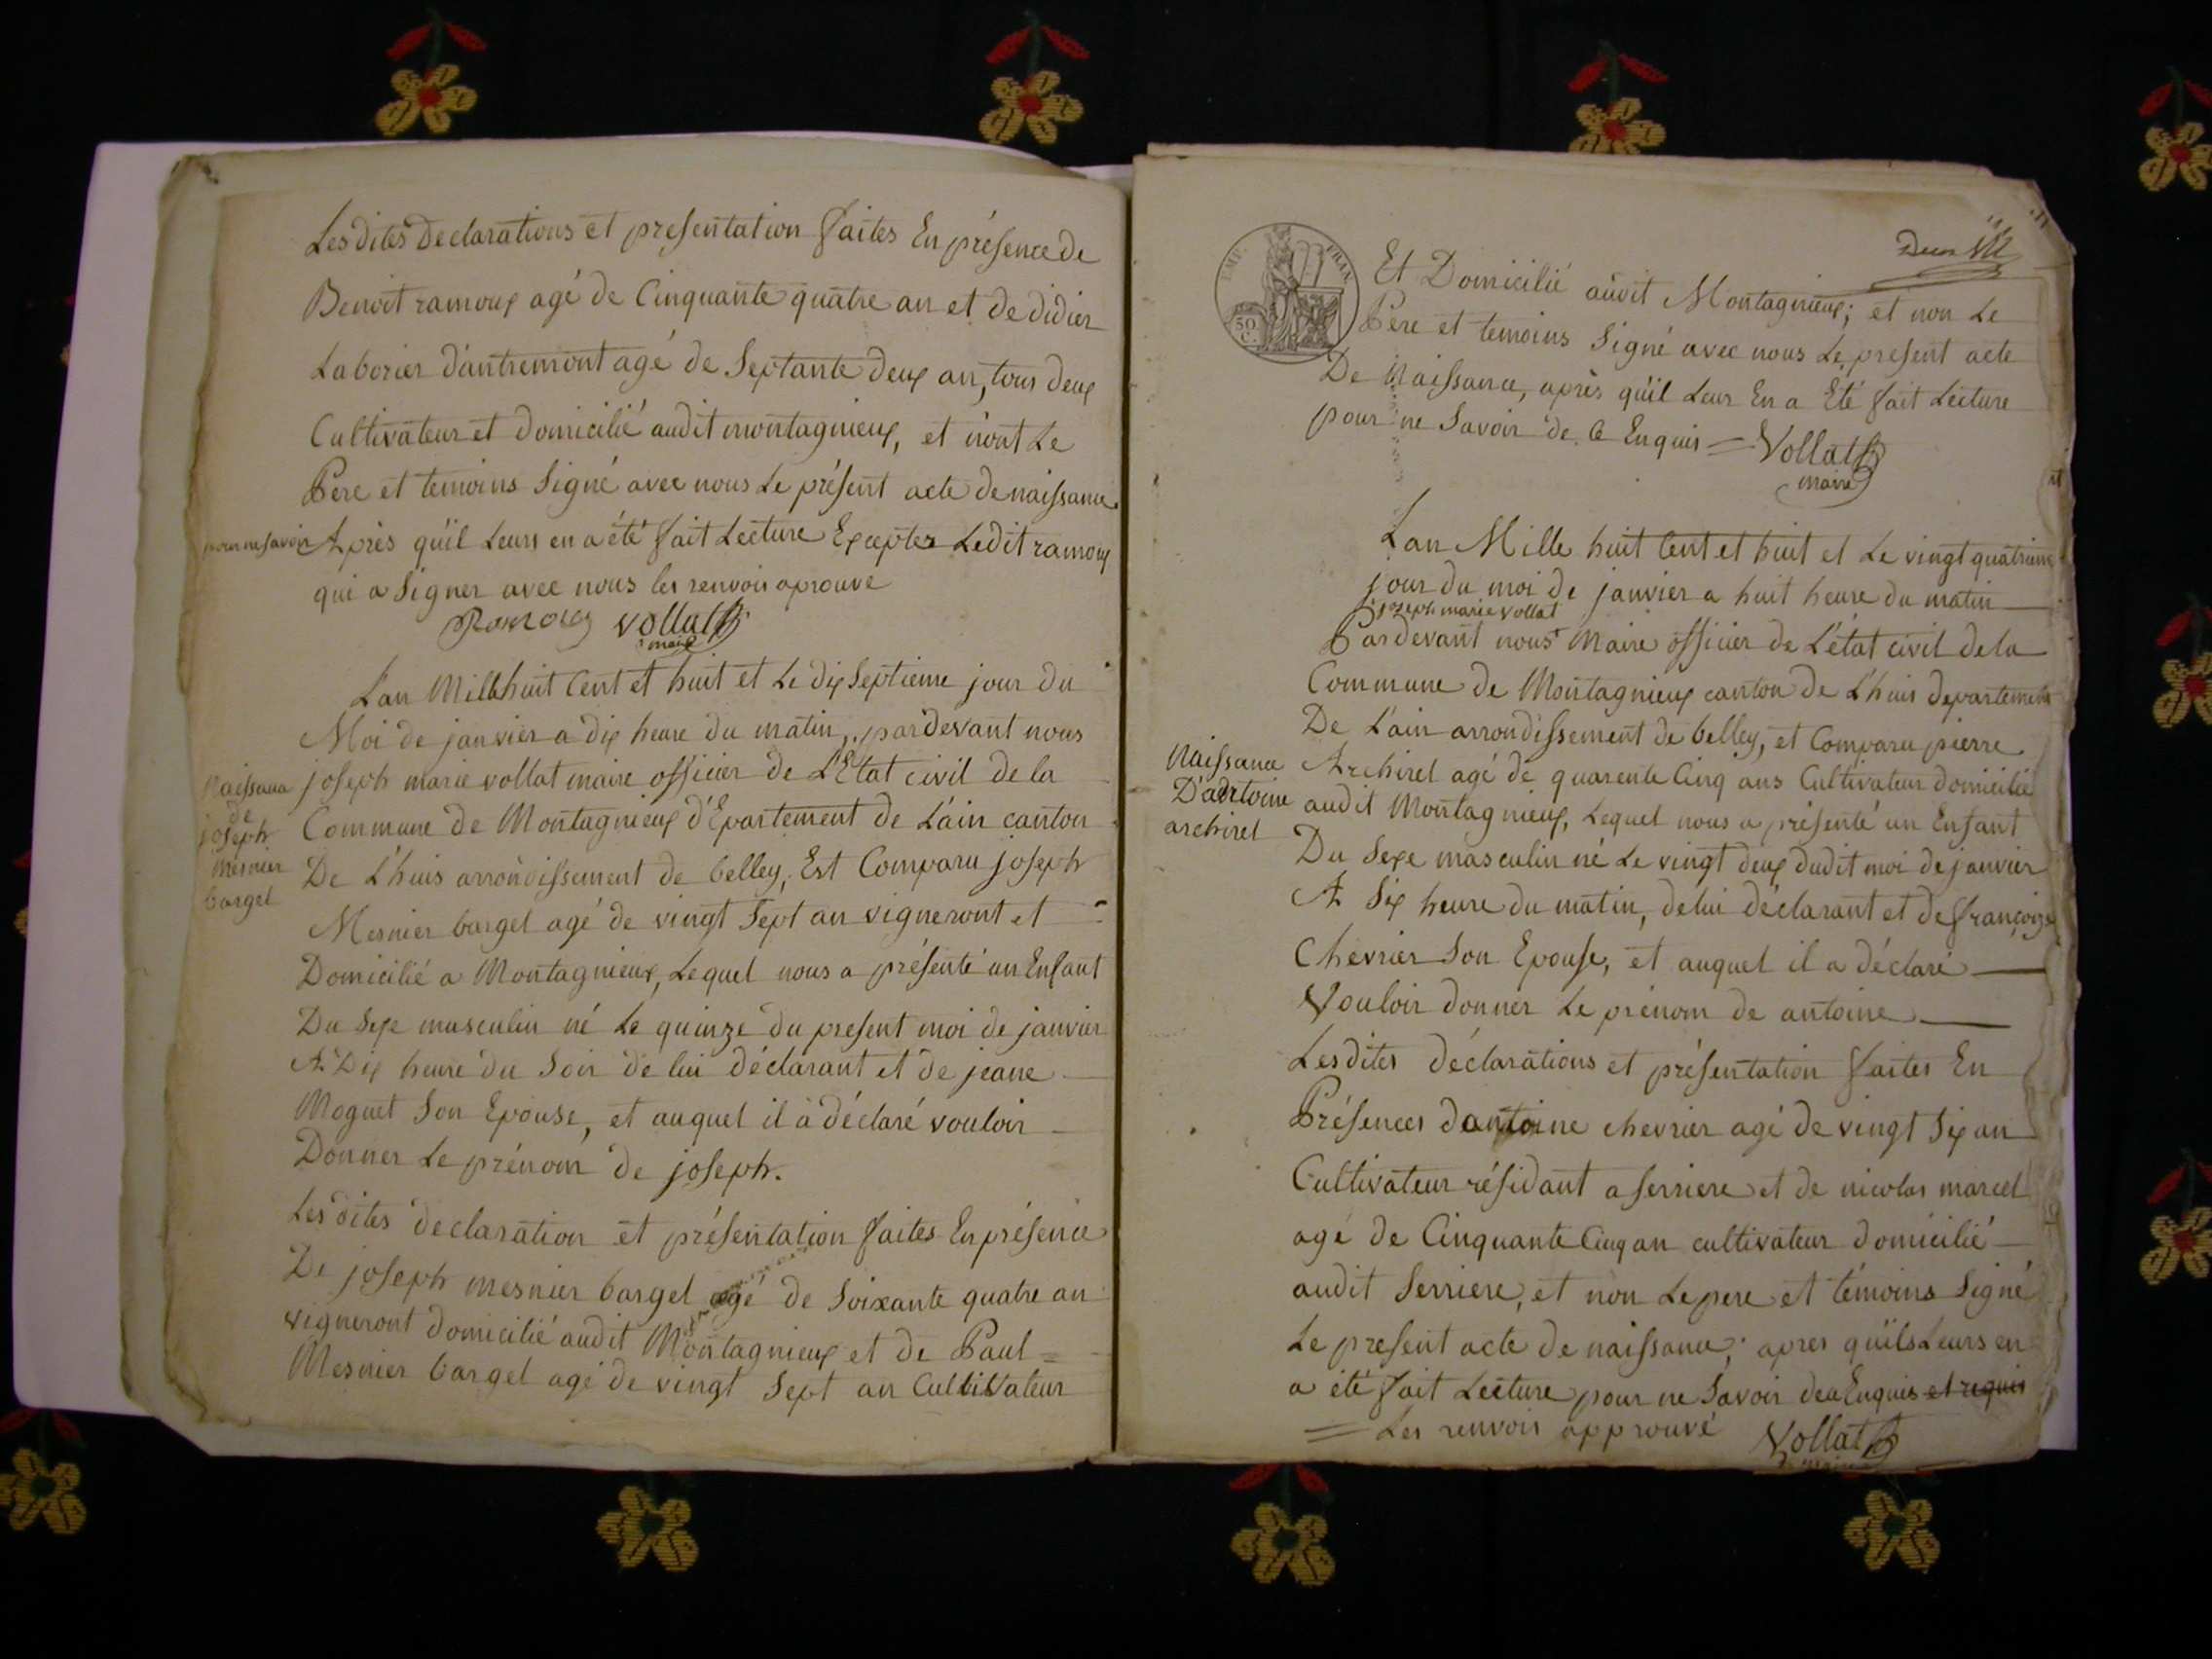 Les dites Declarations et presentation faites En présence de
Benoit ramoux agé de Cinquante quatre an et de didier
Laborier d'antremont agé de Septante deux an, tous deux
Cultivateur et domicilié audit montagnieux, et n'ont Le
Pere et temoins Signé avec nous Le présent acte de naissance
pour ne savoir
Après qu'il Leurs en a été fait Lecture Excepter Ledit ramoux
qui a Signer avec nous les renvois aprouvé
Ramoux Vollat
maire
L'an Mil huit Cent et huit et Le dix Septieme jour du
Moi de janvier a dix heure du matin, pardevant nous
joseph marie vollat maire officier de L'Etat civil de la
Commune de Montagnieux d'Epartement de L'ain canton
De L'huis arrondissement de belley, Est Comparu joseph
Mesnier bargel agé de vingt Sept an vigneront et
Domicilié a Montagnieux, Lequel nous a présenté un Enfant
Du Sexe masculin né Le quinze du present moi de janvier
A Dix heure du Soir de lui déclarant et de jeane
Moguet Son Epouse, et auquel il a déclaré vouloir
Donner Le prénom de joseph.
Les dites declaration et présentation faites En présence
De joseph mesnier bargel agé de Soixante quatre an
vigneront domicilié audit Montagnieux et de Paul =
Mesnier bargel agé de vingt Sept an Cultivateur
Naissance
de
joseph
mesnier
bargel
IMP. FRAN
50
C.
Et Domicilié audit Montagnieux; et non Le
Pere et temoins Signé avec nous Le present acte
De Naissance, après qu'il Leur En a Eté fait Lecture
pour ne Savoir de ce Enquis = Vollat
maire
L'an Mille huit Cent et huit et Le vingt quatrieme
jour du moi de janvier a huit heure du matin
joseph marie vollat
Pardevant nous Maire officier de L'état civil de la
Commune de Montagnieux canton de L'huis departement
De L'ain arrondissement de belley, et Comparu pierre
Archirel agé de quarente Cinq ans Cultivateur domicilié
audit Montagnieux, Lequel nous a présenté un Enfant
Du Sexe masculin né Le vingt deux dudit moi de janvier
A Six heure du matin, de lui déclarant et de françoise
Chevrier Son Epouse, et auquel il a déclaré
Vouloir donner Le prénom de antoine
Naissance
D'antoine
archirel
Les dites déclarations et présentation faites En
Présences dantoine chevrier agé de vingt Six an
Cultivateur résidant a Serriere et de nicolas marcel
agé de Cinquante Cinq an cultivateur domicilié
audit Serriere, et non Le pere et témoins Signé
Le present acte de naissance, apres qu'ils Leurs en
a été fait Lecture pour ne Savoir de ce Enquis et requis
= Les renvois approuvé Vollat
maire